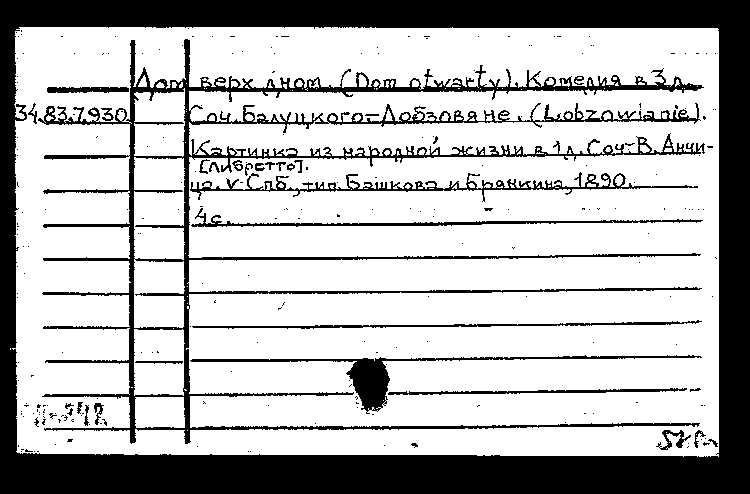 Дом верх дном. (Dom otwarty). Комедия в 3 д.
34.83.7.930 Соч. Балуцкого=Лобзовяне. (Lobzowianie).
Картинка из народной жизни в 1 д. Соч. В. Анчи-
[Либретто].
ца. v Спб., тип. Башкова и Брянкина, 1890.
4 с.